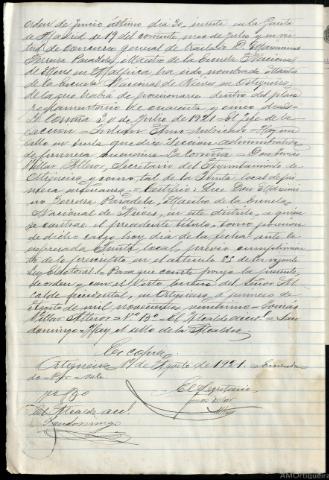 orden de Junio último día 30, inserta en la Gaceta
de Madrid de 19 del corriente mes de Julio y en vir-
tud de concurso general de traslado D. Maximino
Torrera Paradela, Maestro de la Escuela Nacional
de Niños en
de la Escuela Nacional de Niños en Ortigueira,
de la que habrá de posesionarse dentro del plazo
reglamentario de cuarenta y cinco días =
La Coruña 30 de Julio de 1921 = El Jefe de la
Sección = = Hay un
sello en tinta que dice Sección administrativa
de primera enseñanza La Coruña = Don Tomás
Villar Alvar, Secretario del Ayuntamiento de
Ortigueira y como tal de la Junta local de pri-
mera enseñanza = Certifico: Que Don Maximi-
no Torrera Paradela, Maestro de la Escuela
Nacional de Niños, en este distrito, a quien
se contrae el precedente título, tomó posesión
de dicho cargo hoy día de la fecha, ante la
expresada Junta local, previo cumplimien-
to de lo prevenido en el artículo 85 de la vigente
Ley Electoral = Para que conste pongo la presente,
de orden y con el visto bueno del Señor Al-
calde presidente, en Ortigueira, a primero de
Agosto de mil novecientos veintiuno = Tomás
Villar Alvar = Vº Bº = El Alcalde accal. = San-
domingo = Hay el sello de la Alcaldía
Es copia
Ortigueira 1 de Agosto de 1921
El Secretario
Vº Bº
El Alcalde accal.
Sandomingo
AMOrtigueira